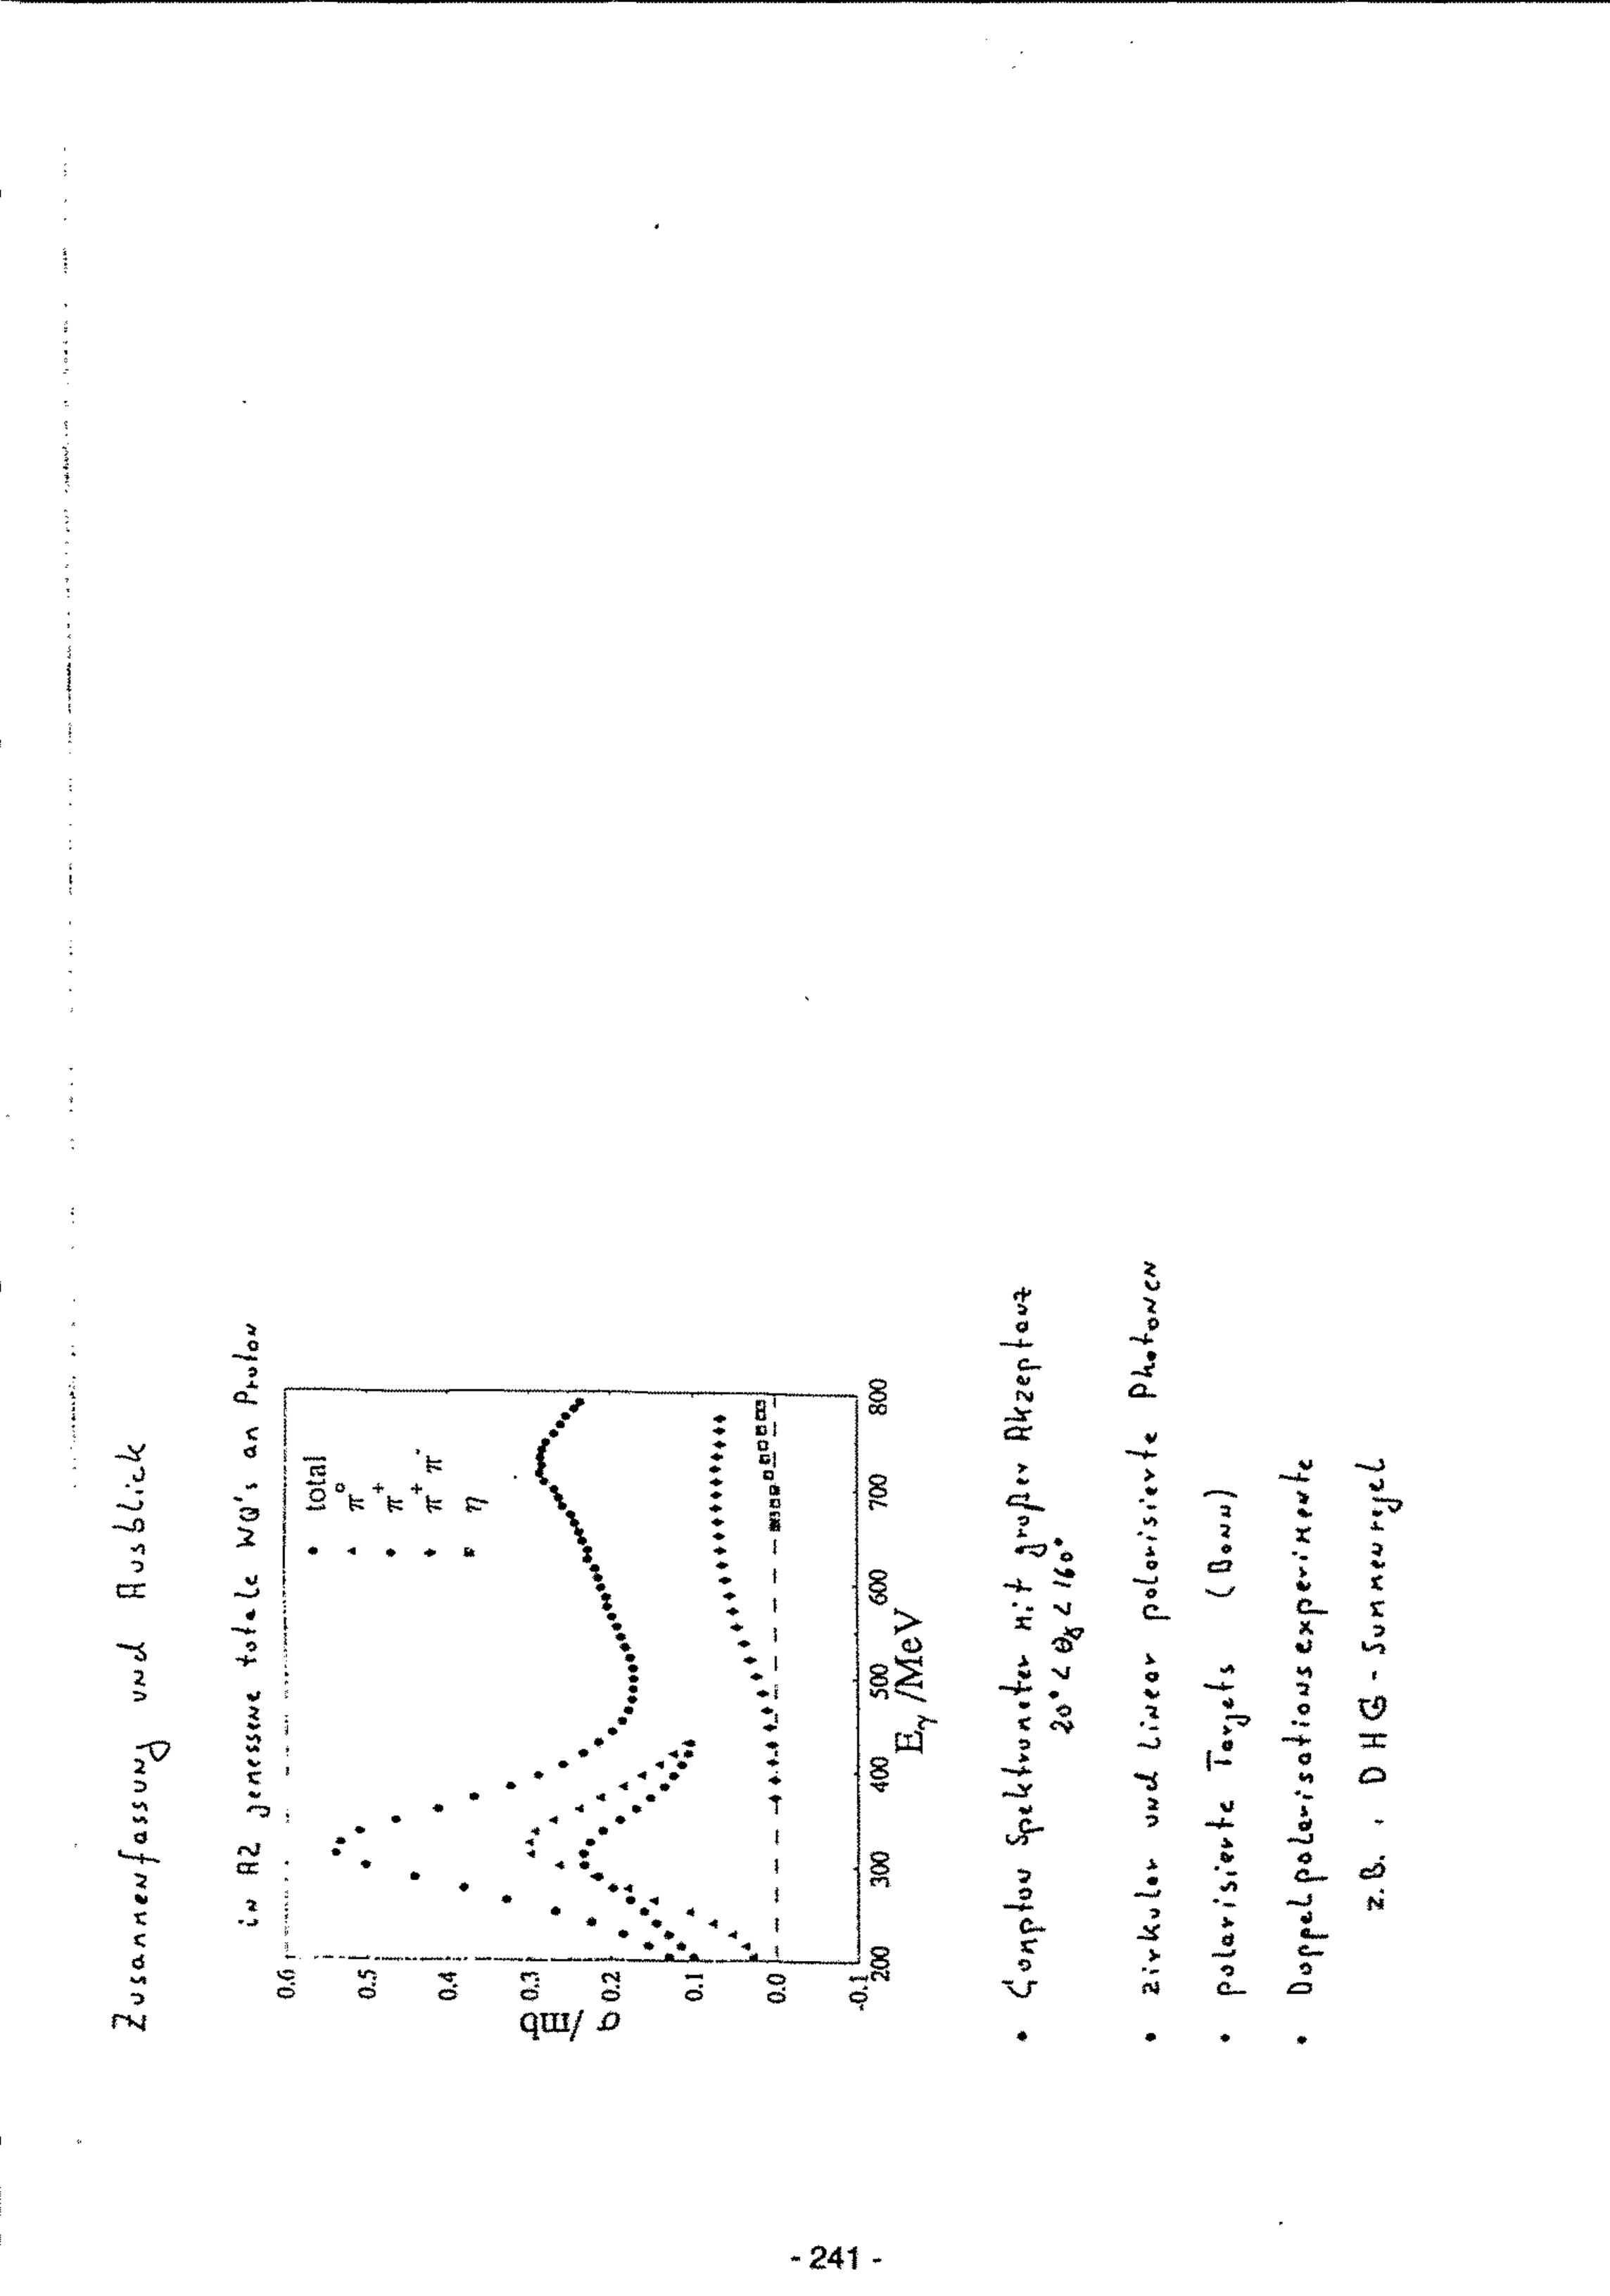 Zusammenfassung und Ausblick
in A2 gemessene totale WQ's am Proton
total
π°
π⁺
π⁺π⁻
η
0.6
0.5
0.4
0.3
0.2
0.1
0.0
-0.1
σ /mb
200 300 400 500 600 700 800
Eγ /MeV
• Compton Spektrometer mit großer Akzeptanz
20° < θγ < 160°
• zirkular und linear polarisierte Photonen
• polarisierte Targets (Bonn)
• Doppelpolarisationsexperimente
z.B. DHG-Summenregel
- 241 -